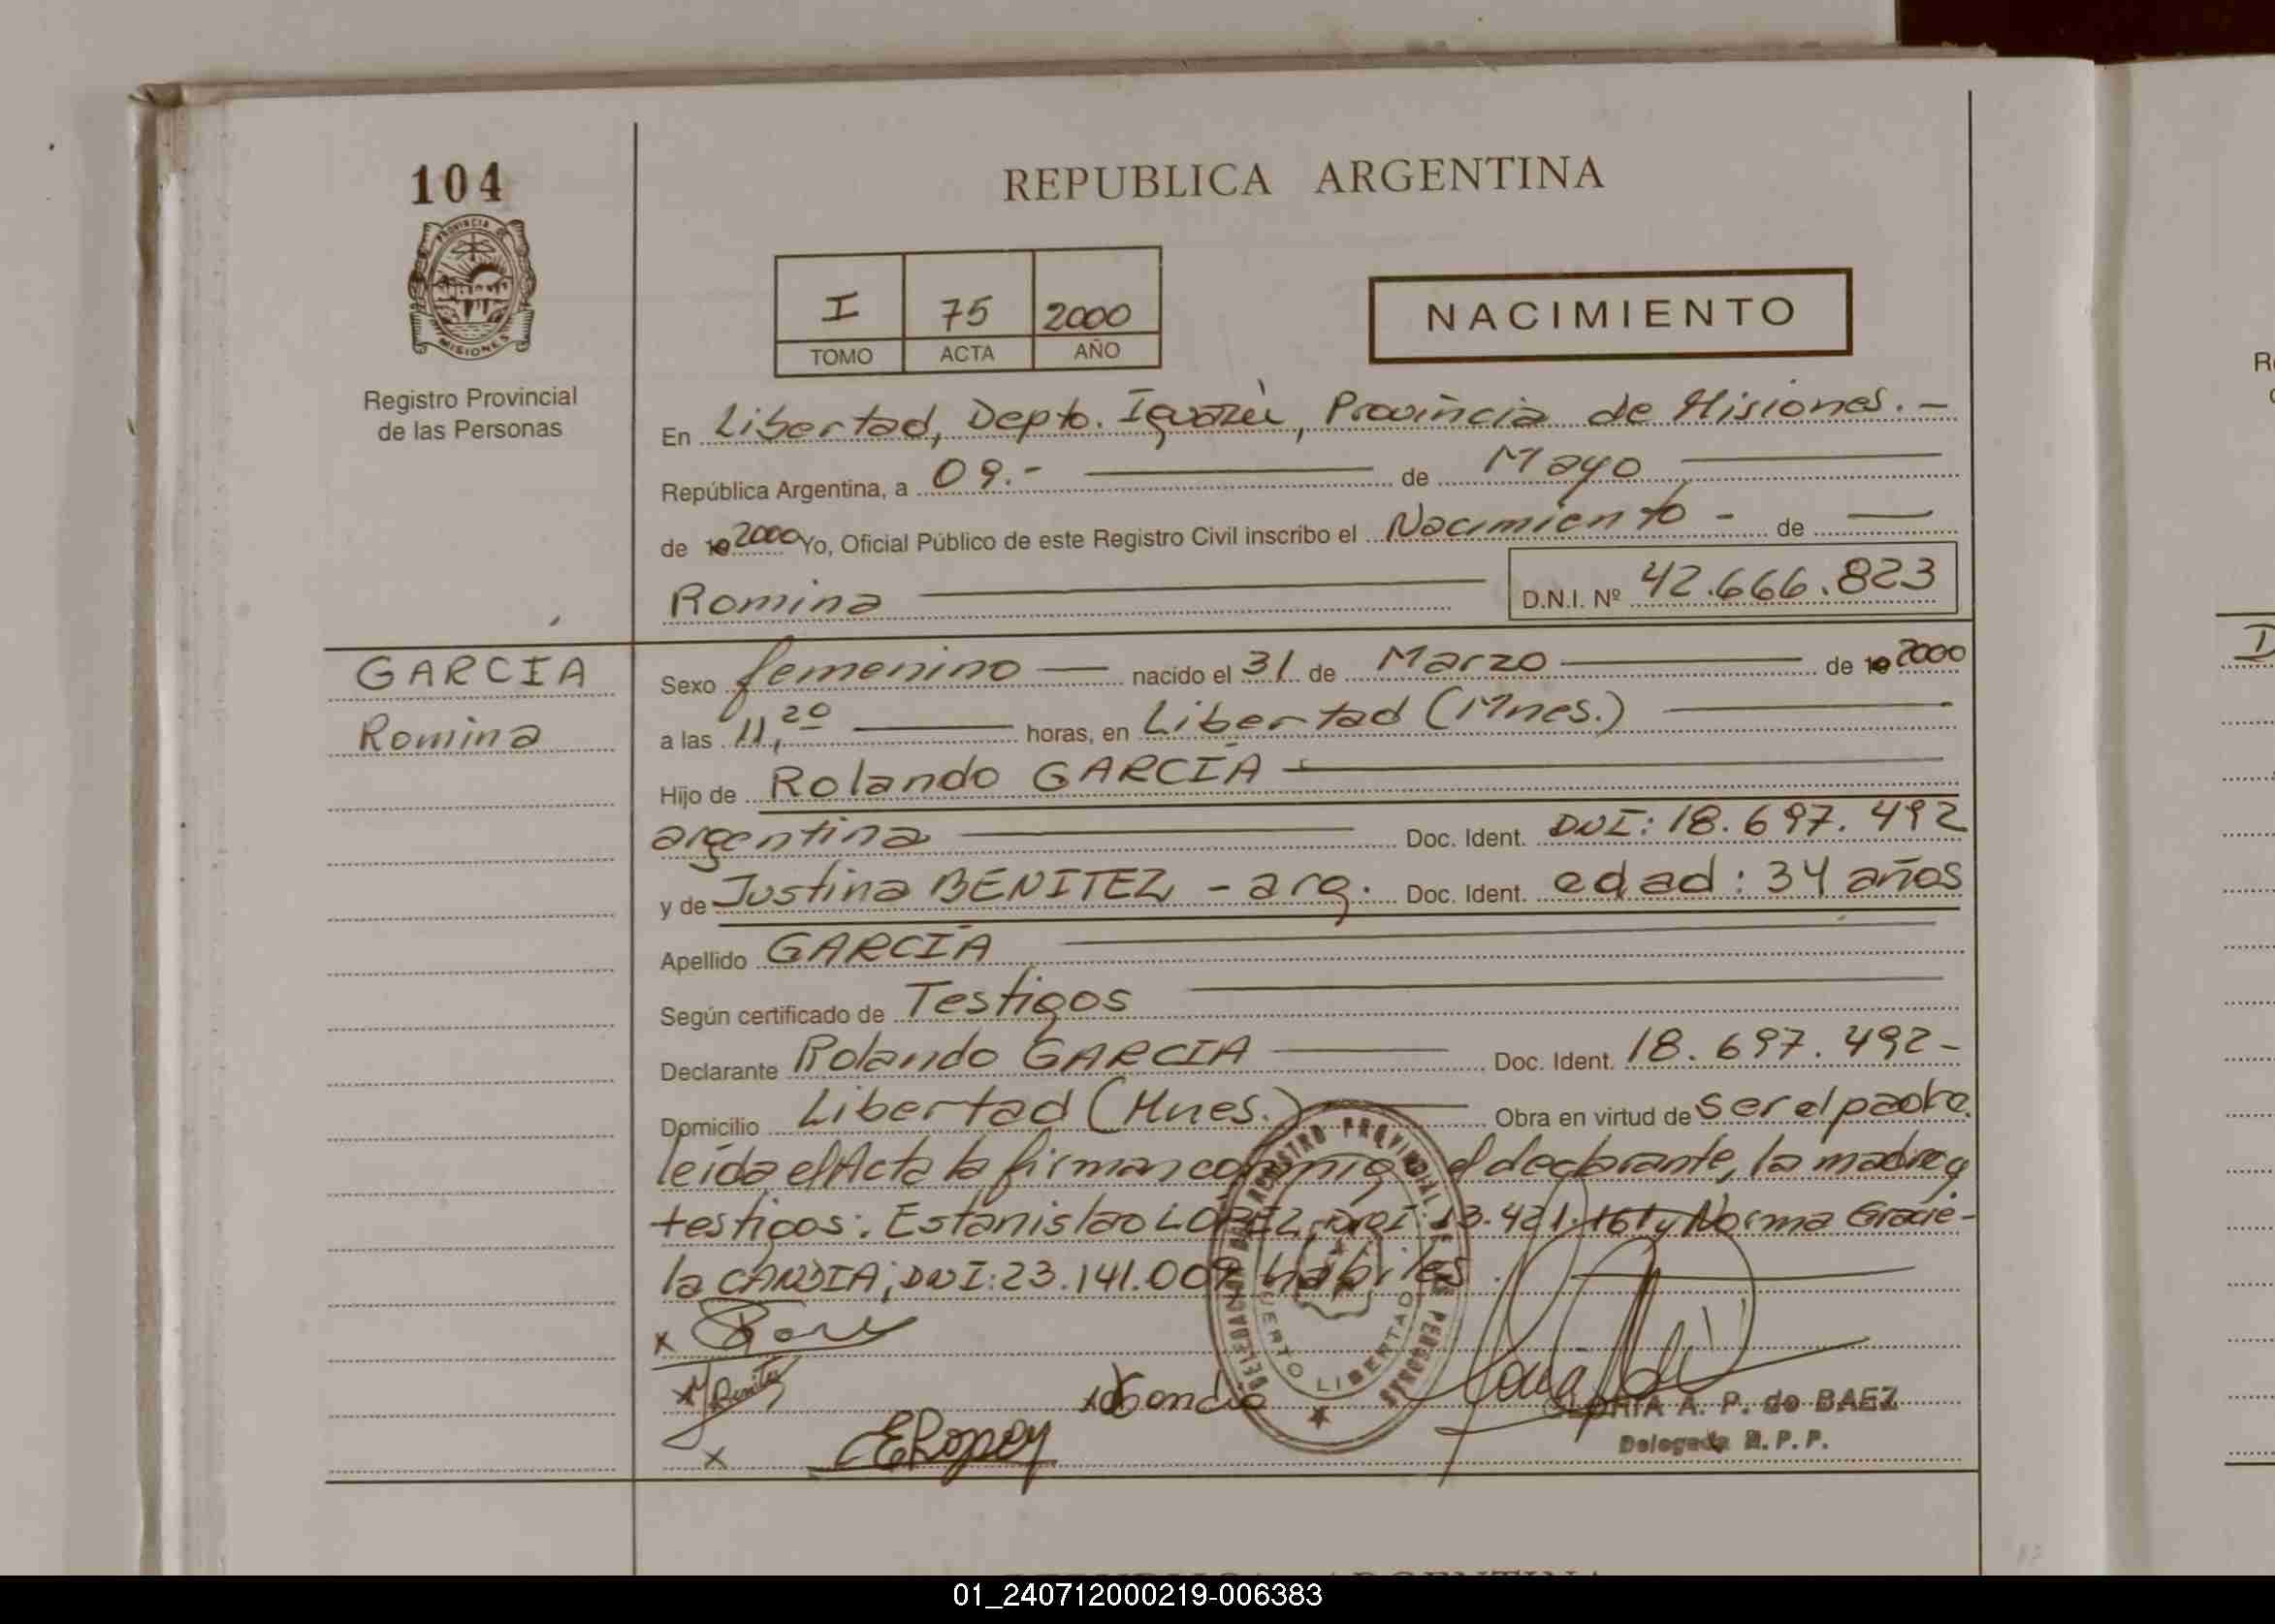 104
REPUBLICA ARGENTINA
PROVINCIA DE
MISIONES
Registro Provincial
de las Personas
I 75 2000
TOMO ACTA AÑO
NACIMIENTO
En Libertad, Depto. Iguazú, Provincia de Misiones.-
República Argentina, a 09.- de Mayo
de 19 2000 Yo, Oficial Público de este Registro Civil inscribo el Nacimiento - de
Romina D.N.I. Nº 42.666.823
GARCIA
Romina
Sexo femenino nacido el 31 de Marzo de 19 2000
a las 11,20 horas, en Libertad (Mnes.)
Hijo de Rolando GARCÍA
argentina Doc. Ident. DNI: 18.697.492
y de Justina BENITEZ - arg. Doc. Ident. edad: 34 años
Apellido GARCÍA
Según certificado de Testigos
Declarante Rolando GARCIA Doc. Ident. 18.697.492-
Domicilio Libertad (Mnes.) Obra en virtud de ser el padre.
leída el Acta la firman conmigo el declarante, la madre y
testigos: Estanislao LOPEZ, DNI: 13.421.161 y Norma Gracie-
la CANDIA; DNI: 23.141.009 hábiles.
x
x Benitez
x
x
DELEGACION DEL REGISTRO PROVINCIAL DE LAS PERSONAS
PUERTO LIBERTAD
GLORIA A. P. de BAEZ
Delegada R. P. P.
01_240712000219-006383